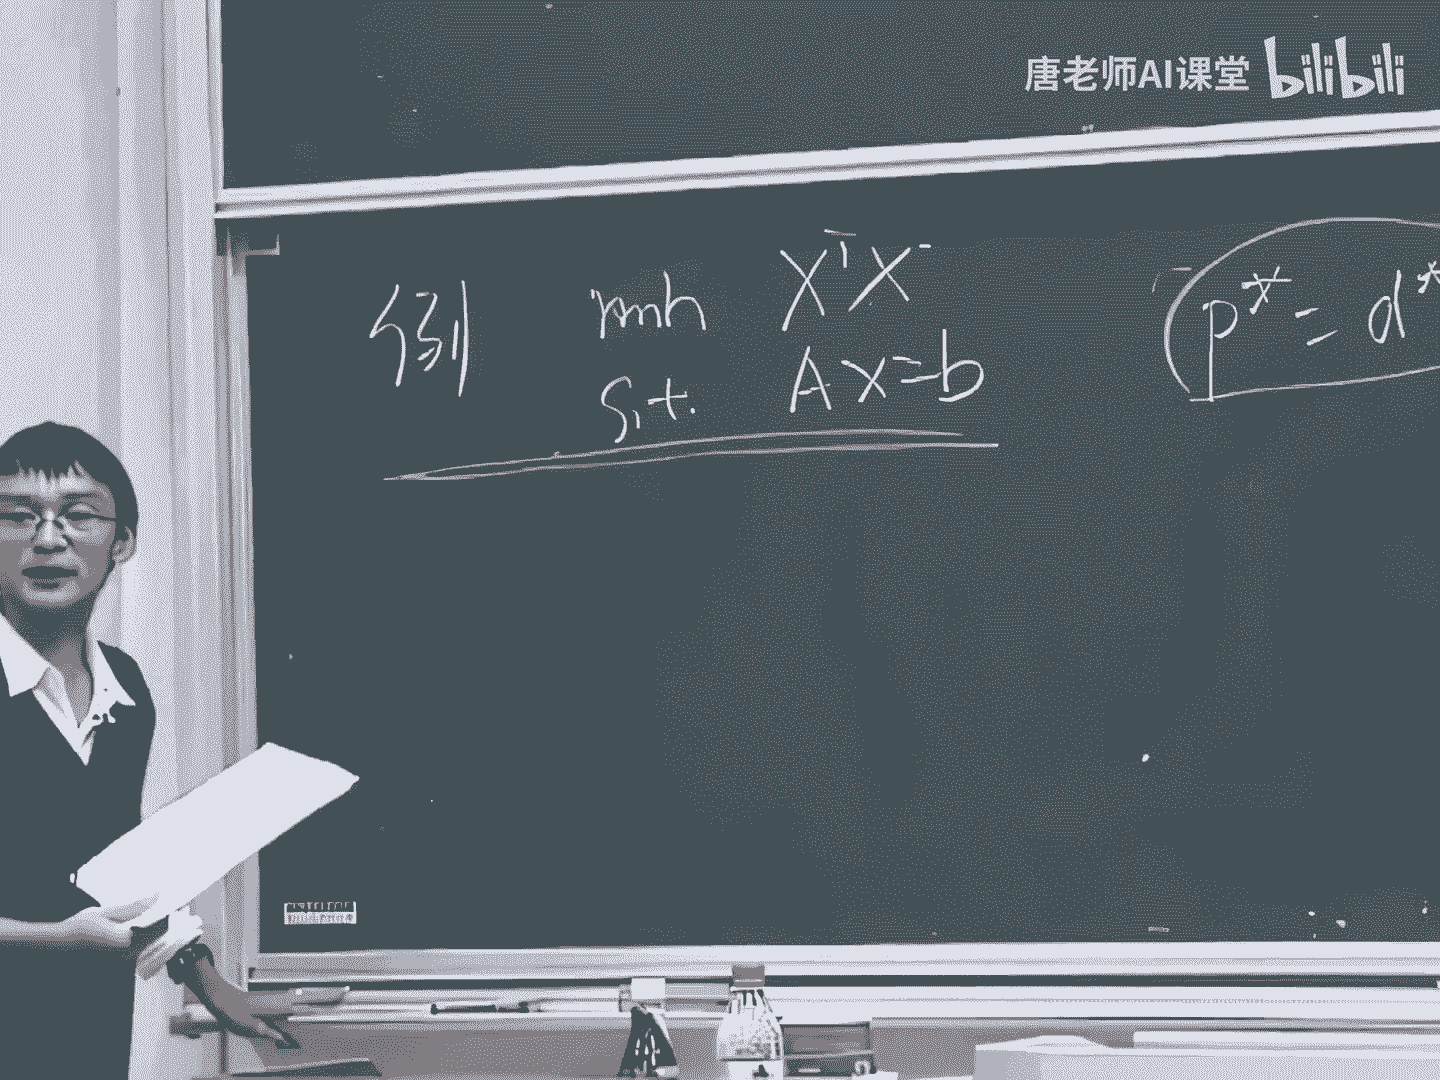 唐老师AI课堂 bilibili
例 min XᵀX
s.t. AX=b
p* = d*